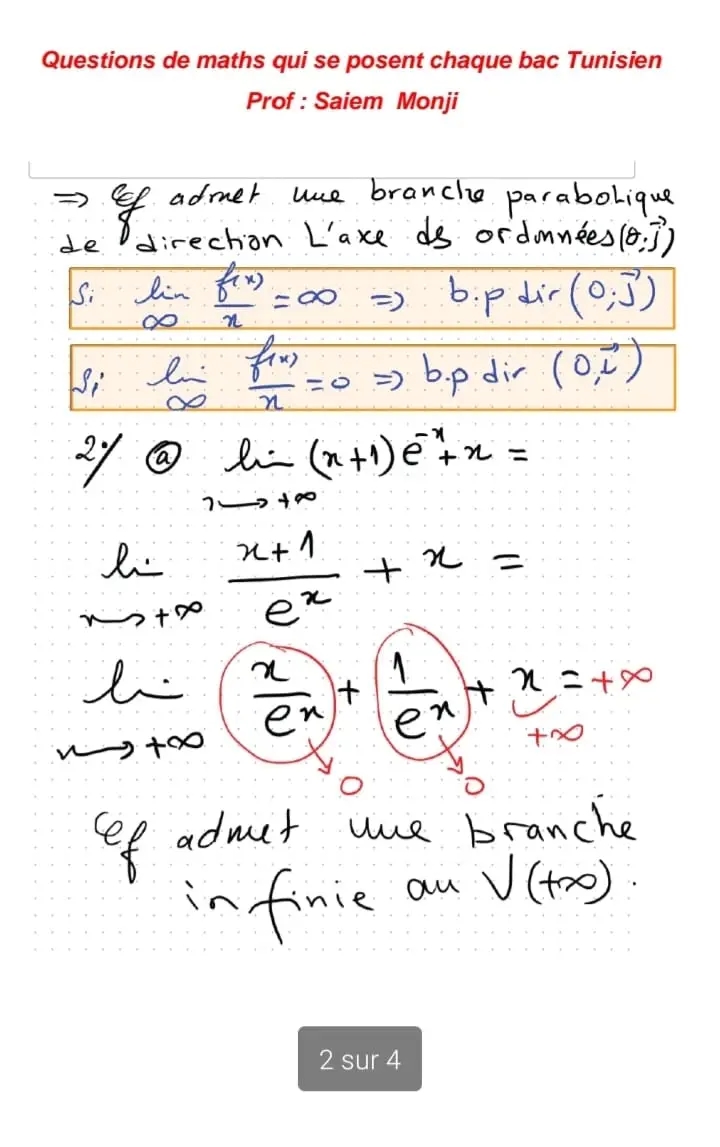 Questions de maths qui se posent chaque bac Tunisien
Prof : Saiem Monji
⇒ 𝒞f admet une branche parabolique
de direction L'axe ds ordonnées (0;j⃗)
Si lim f(x)/x = ∞ ⇒ b.p dir (0;j⃗)
∞
Si li f(x)/x = 0 ⇒ b.p dir (0,i⃗)
∞
2°/ ⓐ li (x+1)e^-x + x =
x→+∞
li (x+1)/e^x + x =
x→+∞
li x/e^x + 1/e^x + x = +∞
x→+∞ +∞
0 0
𝒞f admet une branche
infinie au V(+∞).
2 sur 4